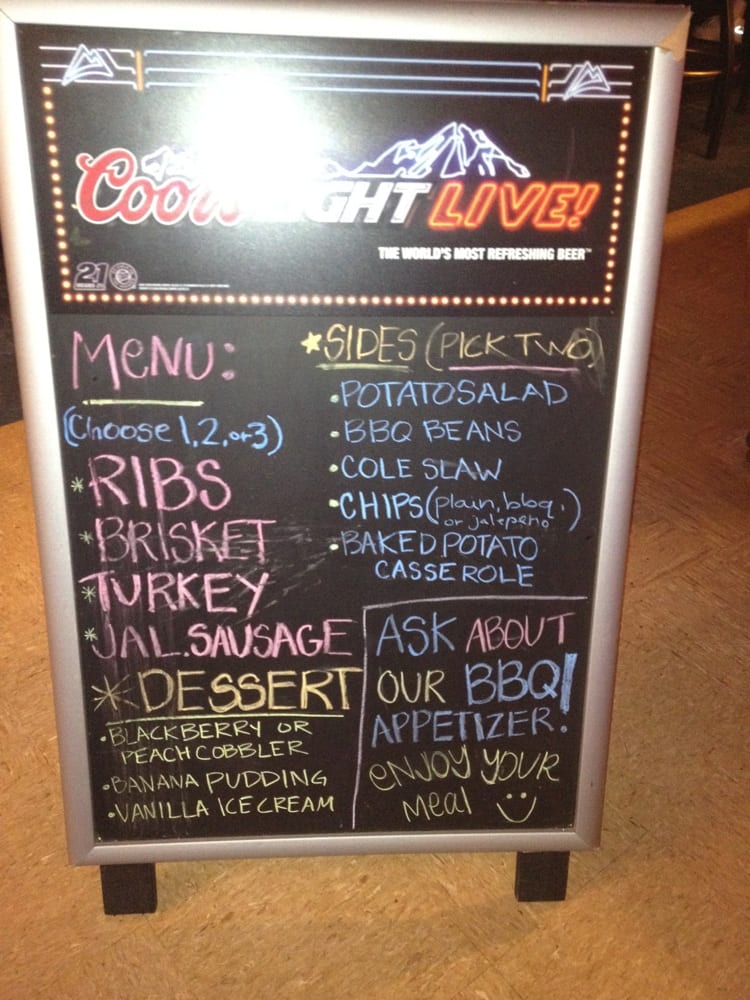 Coors LIGHT LIVE!
THE WORLD'S MOST REFRESHING BEER™
21
MENU:
(Choose 1, 2, or 3)
*RIBS
*BRISKET
*TURKEY
*JAL. SAUSAGE
*DESSERT
•BLACKBERRY OR
PEACH COBBLER
•BANANA PUDDING
•VANILLA ICE CREAM
★SIDES (PICK TWO)
•POTATO SALAD
•BBQ BEANS
•COLE SLAW
•CHIPS (plain, bbq,
or jalepeno)
•BAKED POTATO
CASSEROLE
ASK ABOUT
OUR BBQ
APPETIZER!
ENJOY YOUR
Meal